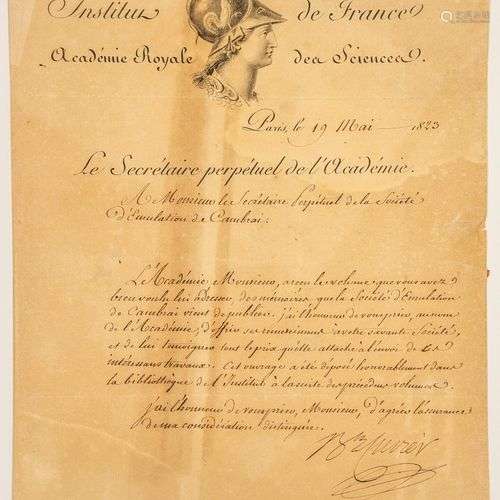 Institut de France
Académie Royale des Sciences.
Paris, le 19 Mai 1823
Le Secrétaire perpétuel de l'Académie.
A Monsieur le Secrétaire Perpétuel de la Société
d'Emulation de Cambrai.
L'Académie, Monsieur, a reçu le volume que vous avez
bien voulu lui adresser, des mémoires, que la Société d'Emulation
de Cambrai vient de publier. j'ai l'honneur de vous prier, au nom
de l'Académie, d'offrir ses remerciemens à votre savante Société,
et de lui témoigner tout le prix qu'elle attache à l'envoi de ces
intéressans travaux. Cet ouvrage a été déposé honorablement dans
la bibliothèque de l'Institut à la suite des précédens volumes.
j'ai l'honneur de vous prier, Monsieur, d'agréer l'assurance
de ma considération distinguée.
Bn Cuvier